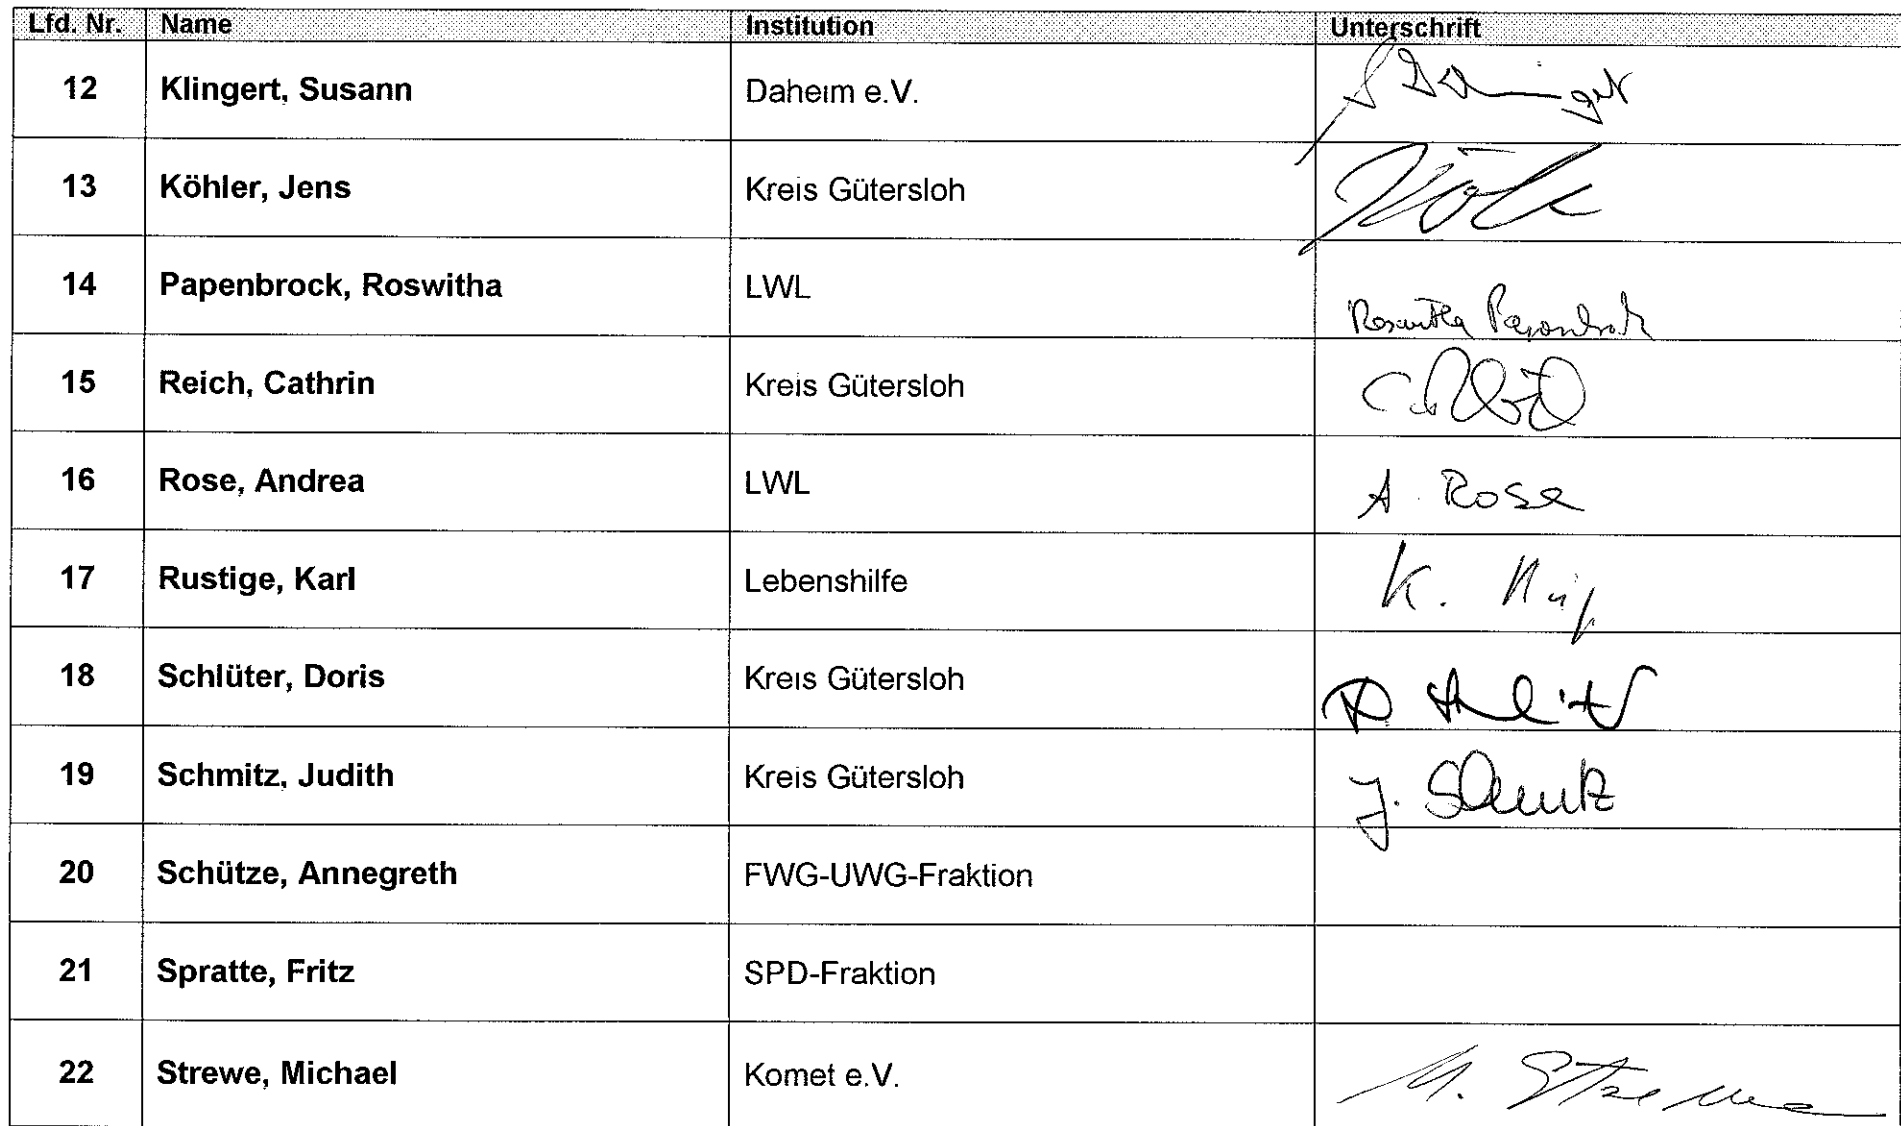 Lfd. Nr. Name Institution Unterschrift
12 Klingert, Susann Daheim e.V.
13 Köhler, Jens Kreis Gütersloh
14 Papenbrock, Roswitha LWL Roswitha Papenbrock
15 Reich, Cathrin Kreis Gütersloh
16 Rose, Andrea LWL A. Rose
17 Rustige, Karl Lebenshilfe K.
18 Schlüter, Doris Kreis Gütersloh
19 Schmitz, Judith Kreis Gütersloh J. Schmitz
20 Schütze, Annegreth FWG-UWG-Fraktion
21 Spratte, Fritz SPD-Fraktion
22 Strewe, Michael Komet e.V. M.